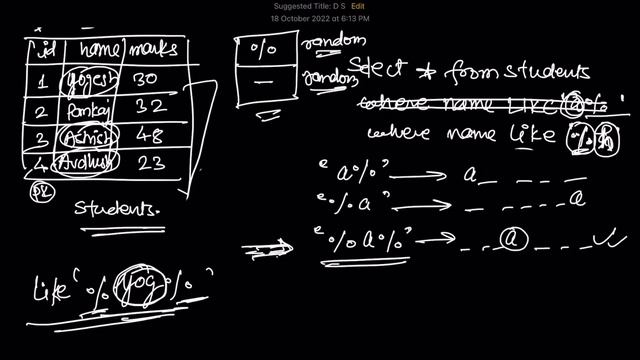 Suggested Title: D S Edit
18 October 2022 at 6:13 PM
id name marks
1 Yogesh 30
2 Pankaj 32
3 Ashish 48
4 Avdhesh 23
PK
Students.
% random
_ random
Select * from students
where name LIKE 'a%'
where name like '%h'
'a%' → a_ _ _ _
'%a' → _ _ _ _ _ a
'%a%' → _ _ a _ _ _
like '%yog%'